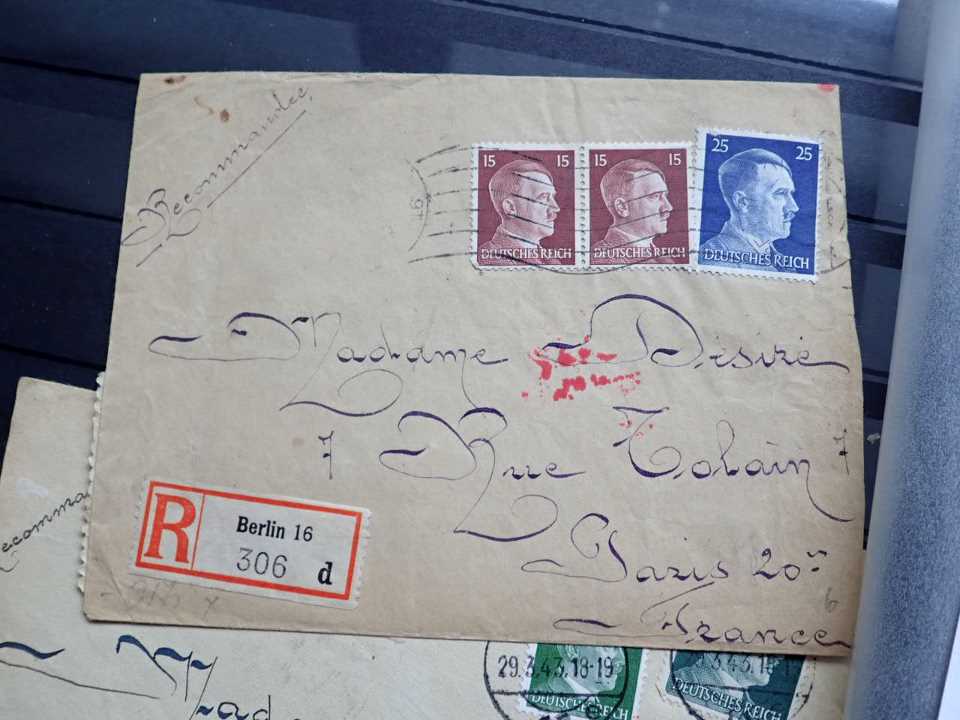 Recommandée
15 15 15 15 25 25
DEUTSCHES REICH DEUTSCHES REICH DEUTSCHES REICH
Madame Désiré
7 Rue Tolain 7
R Berlin 16
306 d
Paris 20
France
6
29.3.43.18-19
DEUTSCHES REICH DEUTSCHES REICH